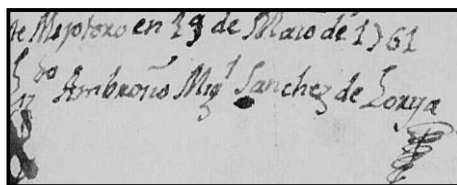 de Mojotoro en 19 de Maio de 1761
Ambrosio Mig.l Sanchez de Lorya